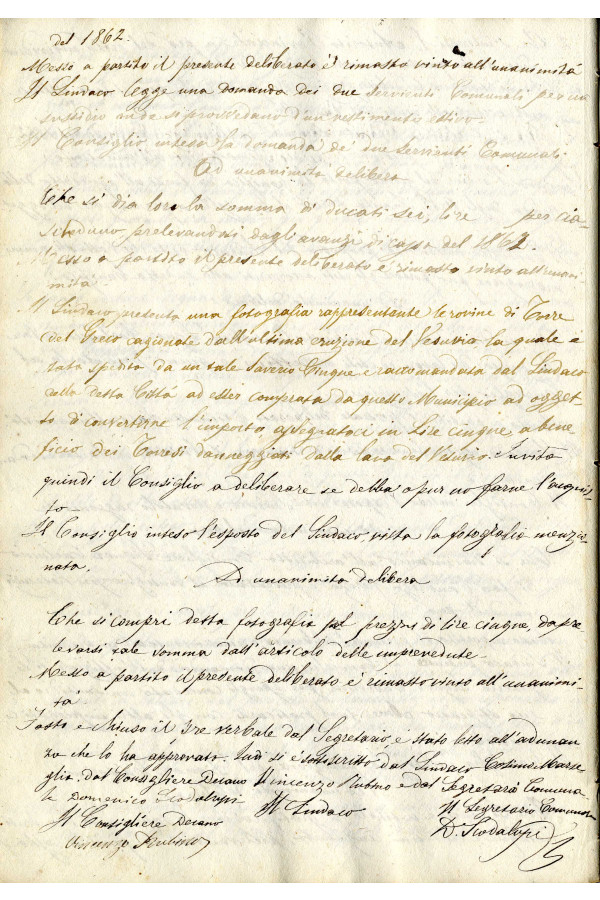 del 1862.
Messo a partito il presente deliberato è rimasto vinto all'unanimità
Il Sindaco legge una domanda dei due servienti Comunali per un
sussidio onde si provvedano d'un vestimento estivo.
Il Consiglio intesa la domanda de' due servienti Comunali
Ad unanimità delibera
Che si dia loro la somma di ducati sei, lire per cia-
scheduno, prelevandosi dagli avanzi di cassa del 1862.
Messo a partito il presente deliberato è rimasto vinto all'unani-
mità.
Il Sindaco presenta una fotografia rappresentante le rovine di Torre
del Greco cagionate dall'ultima eruzione del Vesuvio la quale è
stata spedita da un tale Saverio Cinque e raccomandata dal Sindaco
della detta Città ad esser comperata da questo Municipio ad ogget-
to di convertirne l'importo assegnatoci in Lire cinque a bene
ficio dei Torresi danneggiati dalla lava del Vesuvio. Invita
quindi il Consiglio a deliberare se debba o pur no farne l'acquis-
to
Il Consiglio inteso l'esposto del Sindaco, vista la fotografia menzio-
nata.
Ad unanimità delibera
Che si compri detta fotografia pel prezzo di lire cinque, da pre
levarsi tale somma dall'articolo delle imprevedute
Messo a partito il presente deliberato è rimasto vinto all'unanimi-
tà
Fatto e chiuso il verbale dal Segretario, è stato letto all'adunan
za che lo ha approvato. Indi si è sottoscritto dal Sindaco Cosimo
dal Consigliere Decano Vincenzo Rubino e dal Segretario Comuna
le Domenico Scodalupi
Il Consigliere Decano
Vincenzo Rubino
Il Sindaco
Il Segretario Comunale
D. Scodalupi